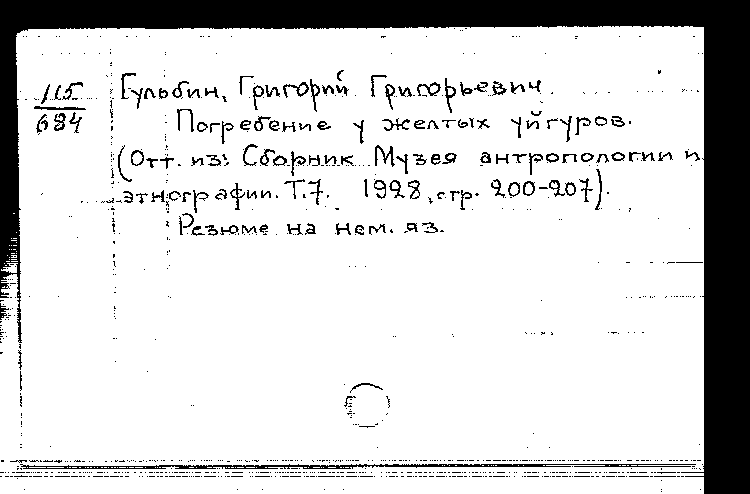 115
684
Гульбин, Григорий Григорьевич.
Погребение у желтых уйгуров.
(Отт. из: Сборник Музея антропологии и
этнографии. Т.7. 1928, стр. 200-207).
Резюме на нем. яз.